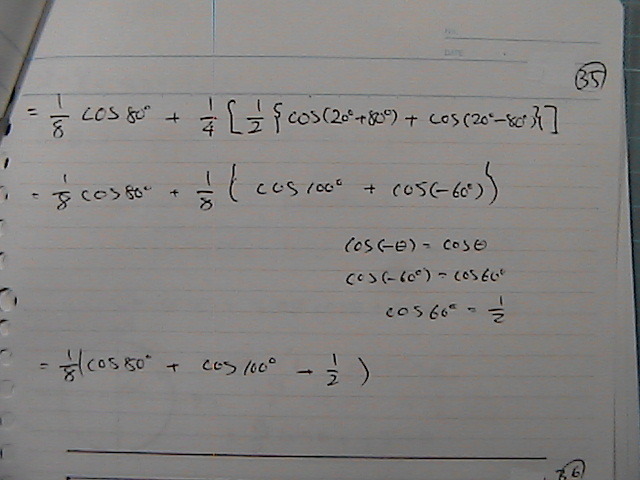 NO.
DATE
35
= 1/8 cos 80° + 1/4 [ 1/2 { cos(20°+80°) + cos(20°-80°) } ]
= 1/8 cos 80° + 1/8 ( cos 100° + cos(-60°) )
cos(-θ) = cosθ
cos(-60°) = cos60°
cos 60° = 1/2
= 1/8 ( cos 80° + cos 100° + 1/2 )
36